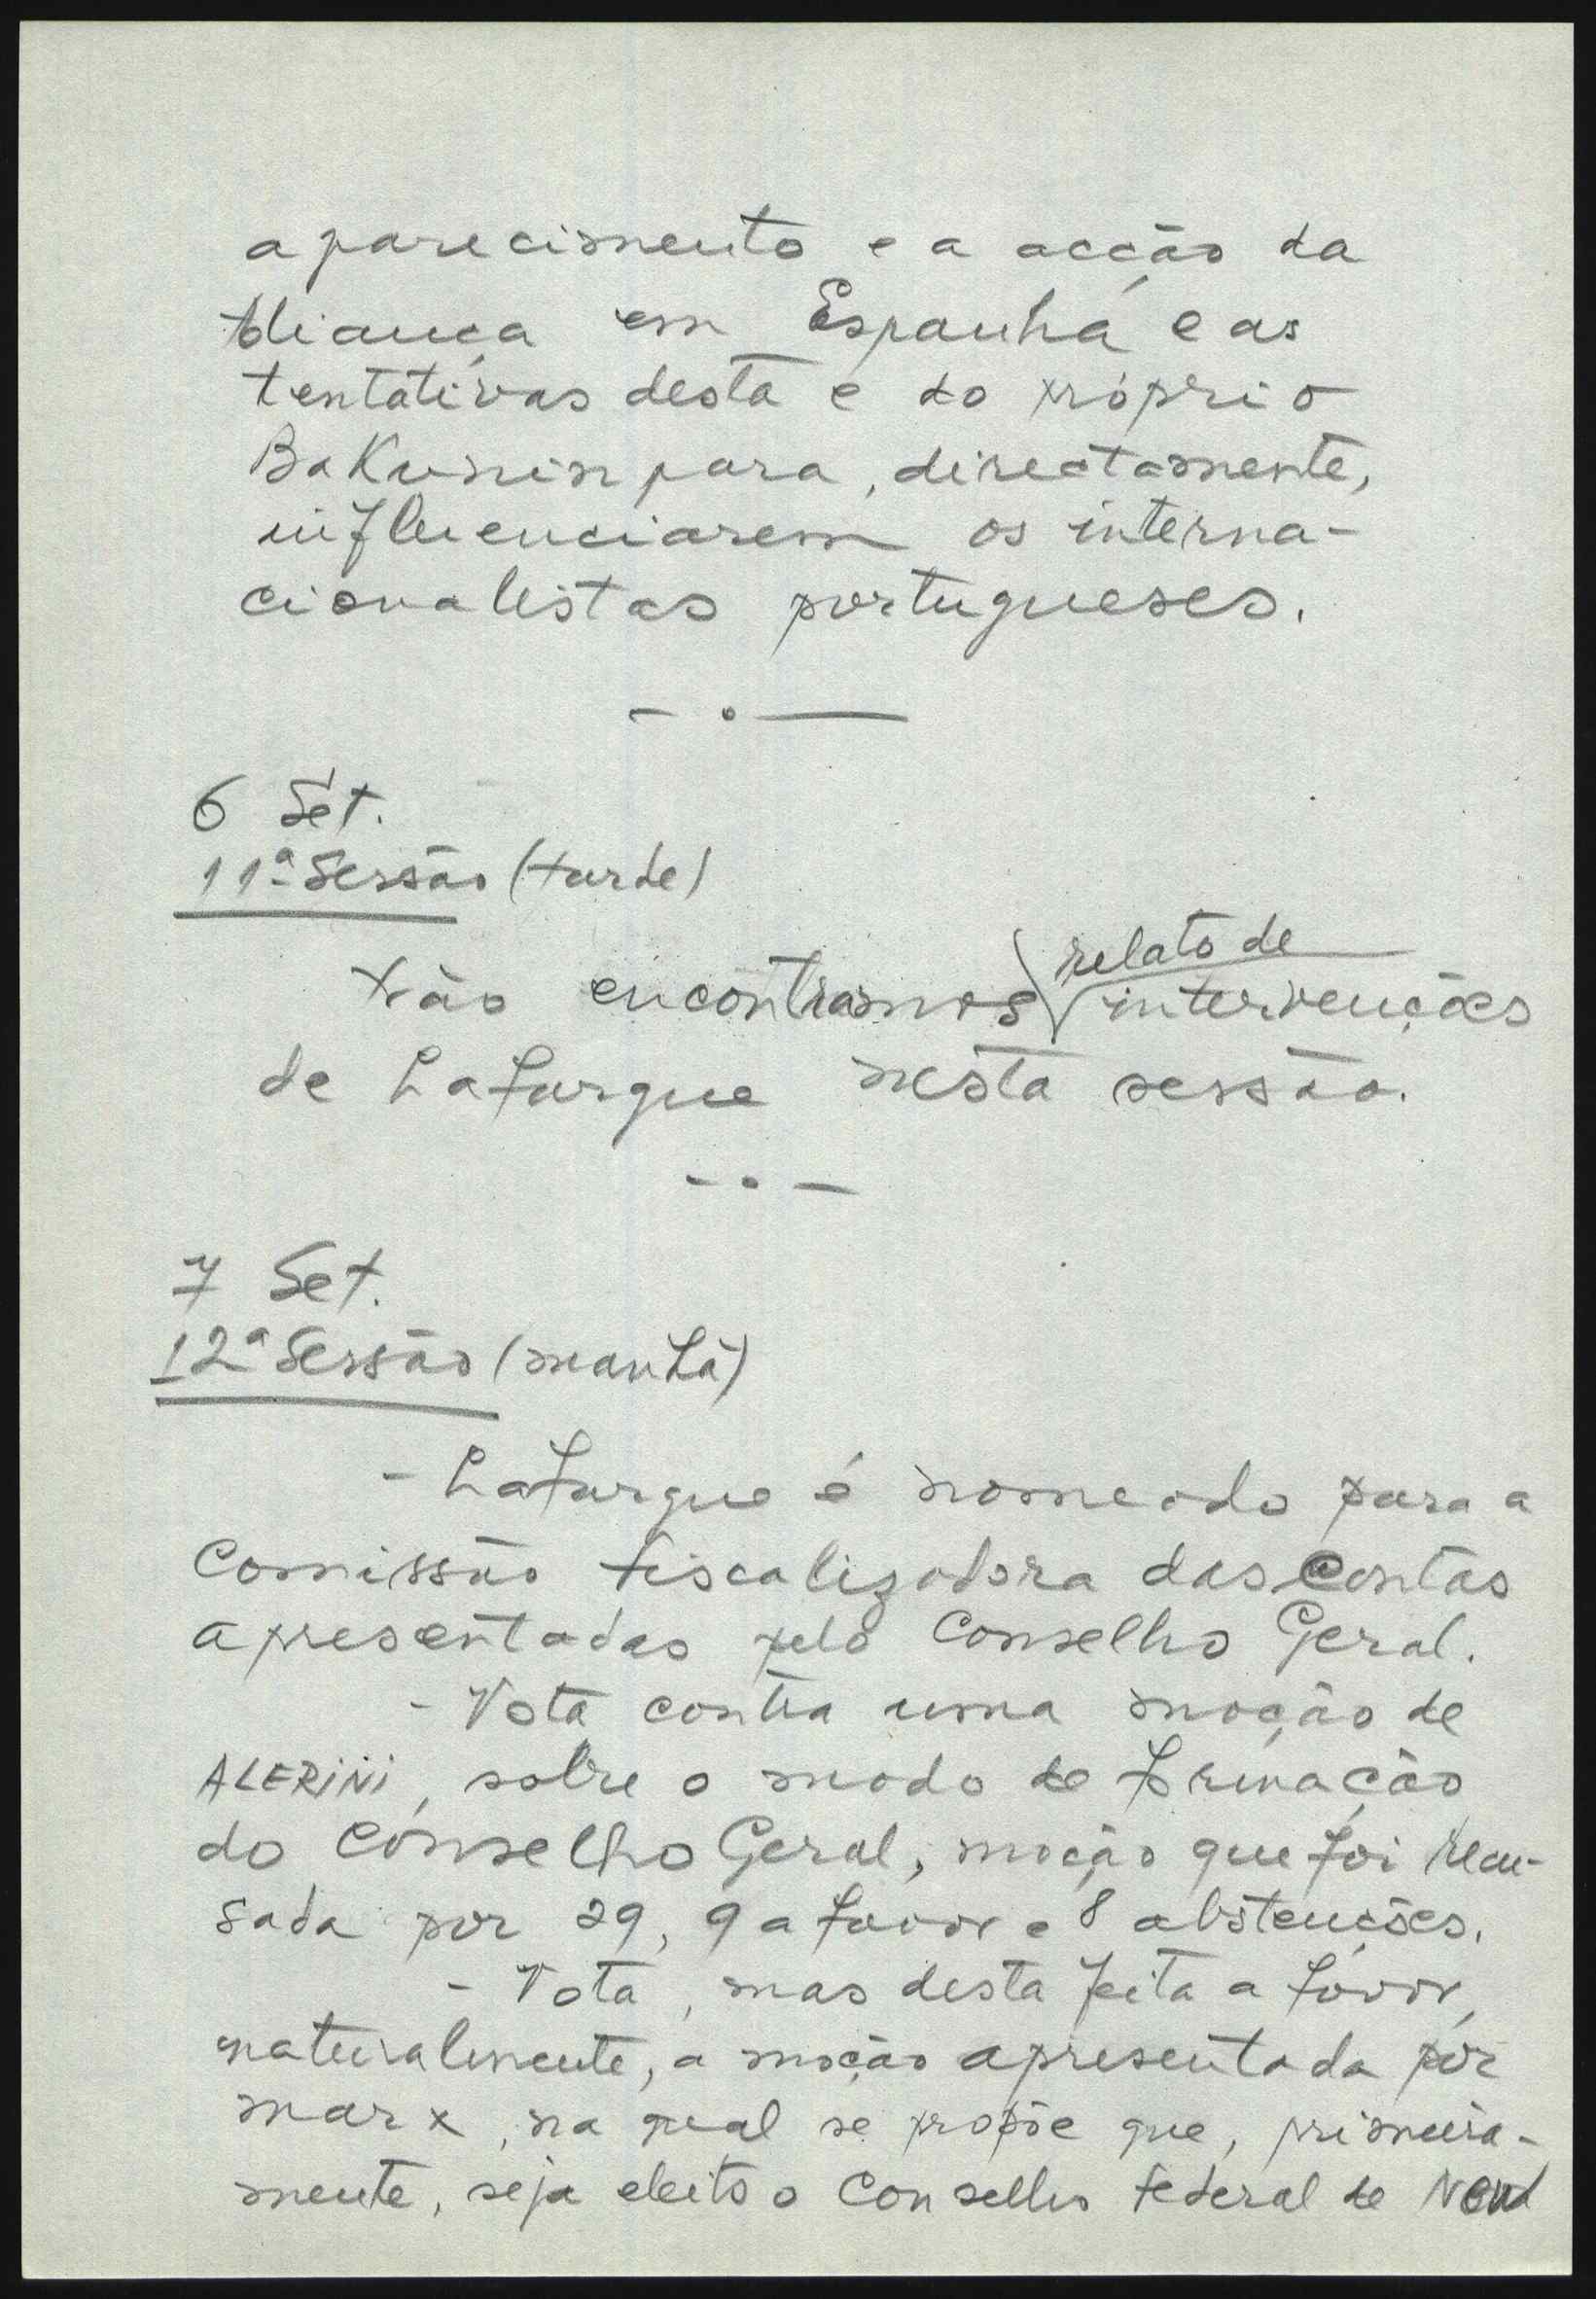 aparecimento e a acção da
Aliança em Espanha e as
tentativas desta e do próprio
Bakunin para, directamente,
influenciarem os interna-
cionalistas portugueses.
6 Set.
11ª Sessão (tarde)
relato de
Não encontramos intervenções
de Lafargue nesta sessão.
7 Set.
12ª Sessão (manhã)
- Lafargue é nomeado para a
Comissão fiscalizadora das contas
apresentadas pelo Conselho Geral.
- Vota contra uma moção de
ALERINI, sobre o modo de formação
do Conselho Geral, moção que foi recu-
sada por 29, 9 a favor e 8 abstenções.
- Vota, mas desta feita a favor,
naturalmente, a moção apresentada por
Marx, na qual se propõe que, primeira-
mente, seja eleito o Conselho federal de